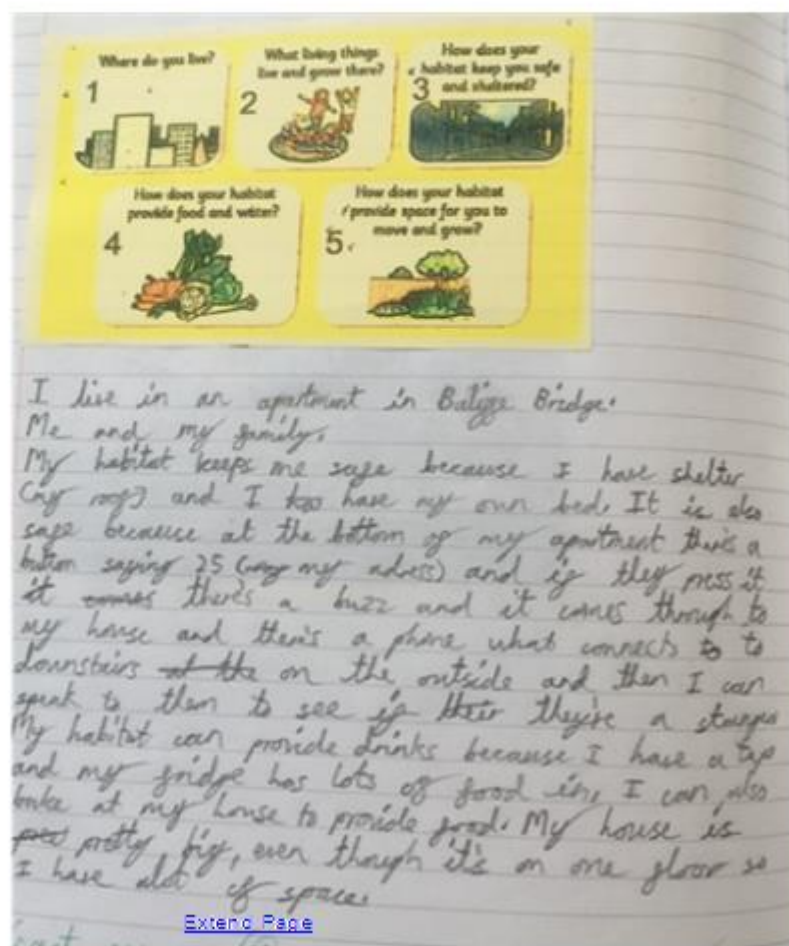 Where do you live?
1
What living things
live and grow there?
2
How does your
habitat keep you safe
3 and sheltered?
How does your habitat
provide food and water?
4
How does your habitat
provide space for you to
move and grow?
5
I live in an apartment in Bridge.
Me and my family.
My habitat keeps me safe because I have shelter
(my roof) and I have my own bed. It is also
safe because at the bottom of my apartment there's a
button saying 25 (my adress) and if they press it
it there's a buzz and it comes through to
my house and there's a phone what connects to
downstairs on the outside and then I can
speak to them to see if they're a
My habitat can provide drinks because I have a tap
and my fridge has lots of food in, I can also
bake at my house to provide food. My house is
pretty big, even though it's on one floor so
I have alot of space.
Extend Page